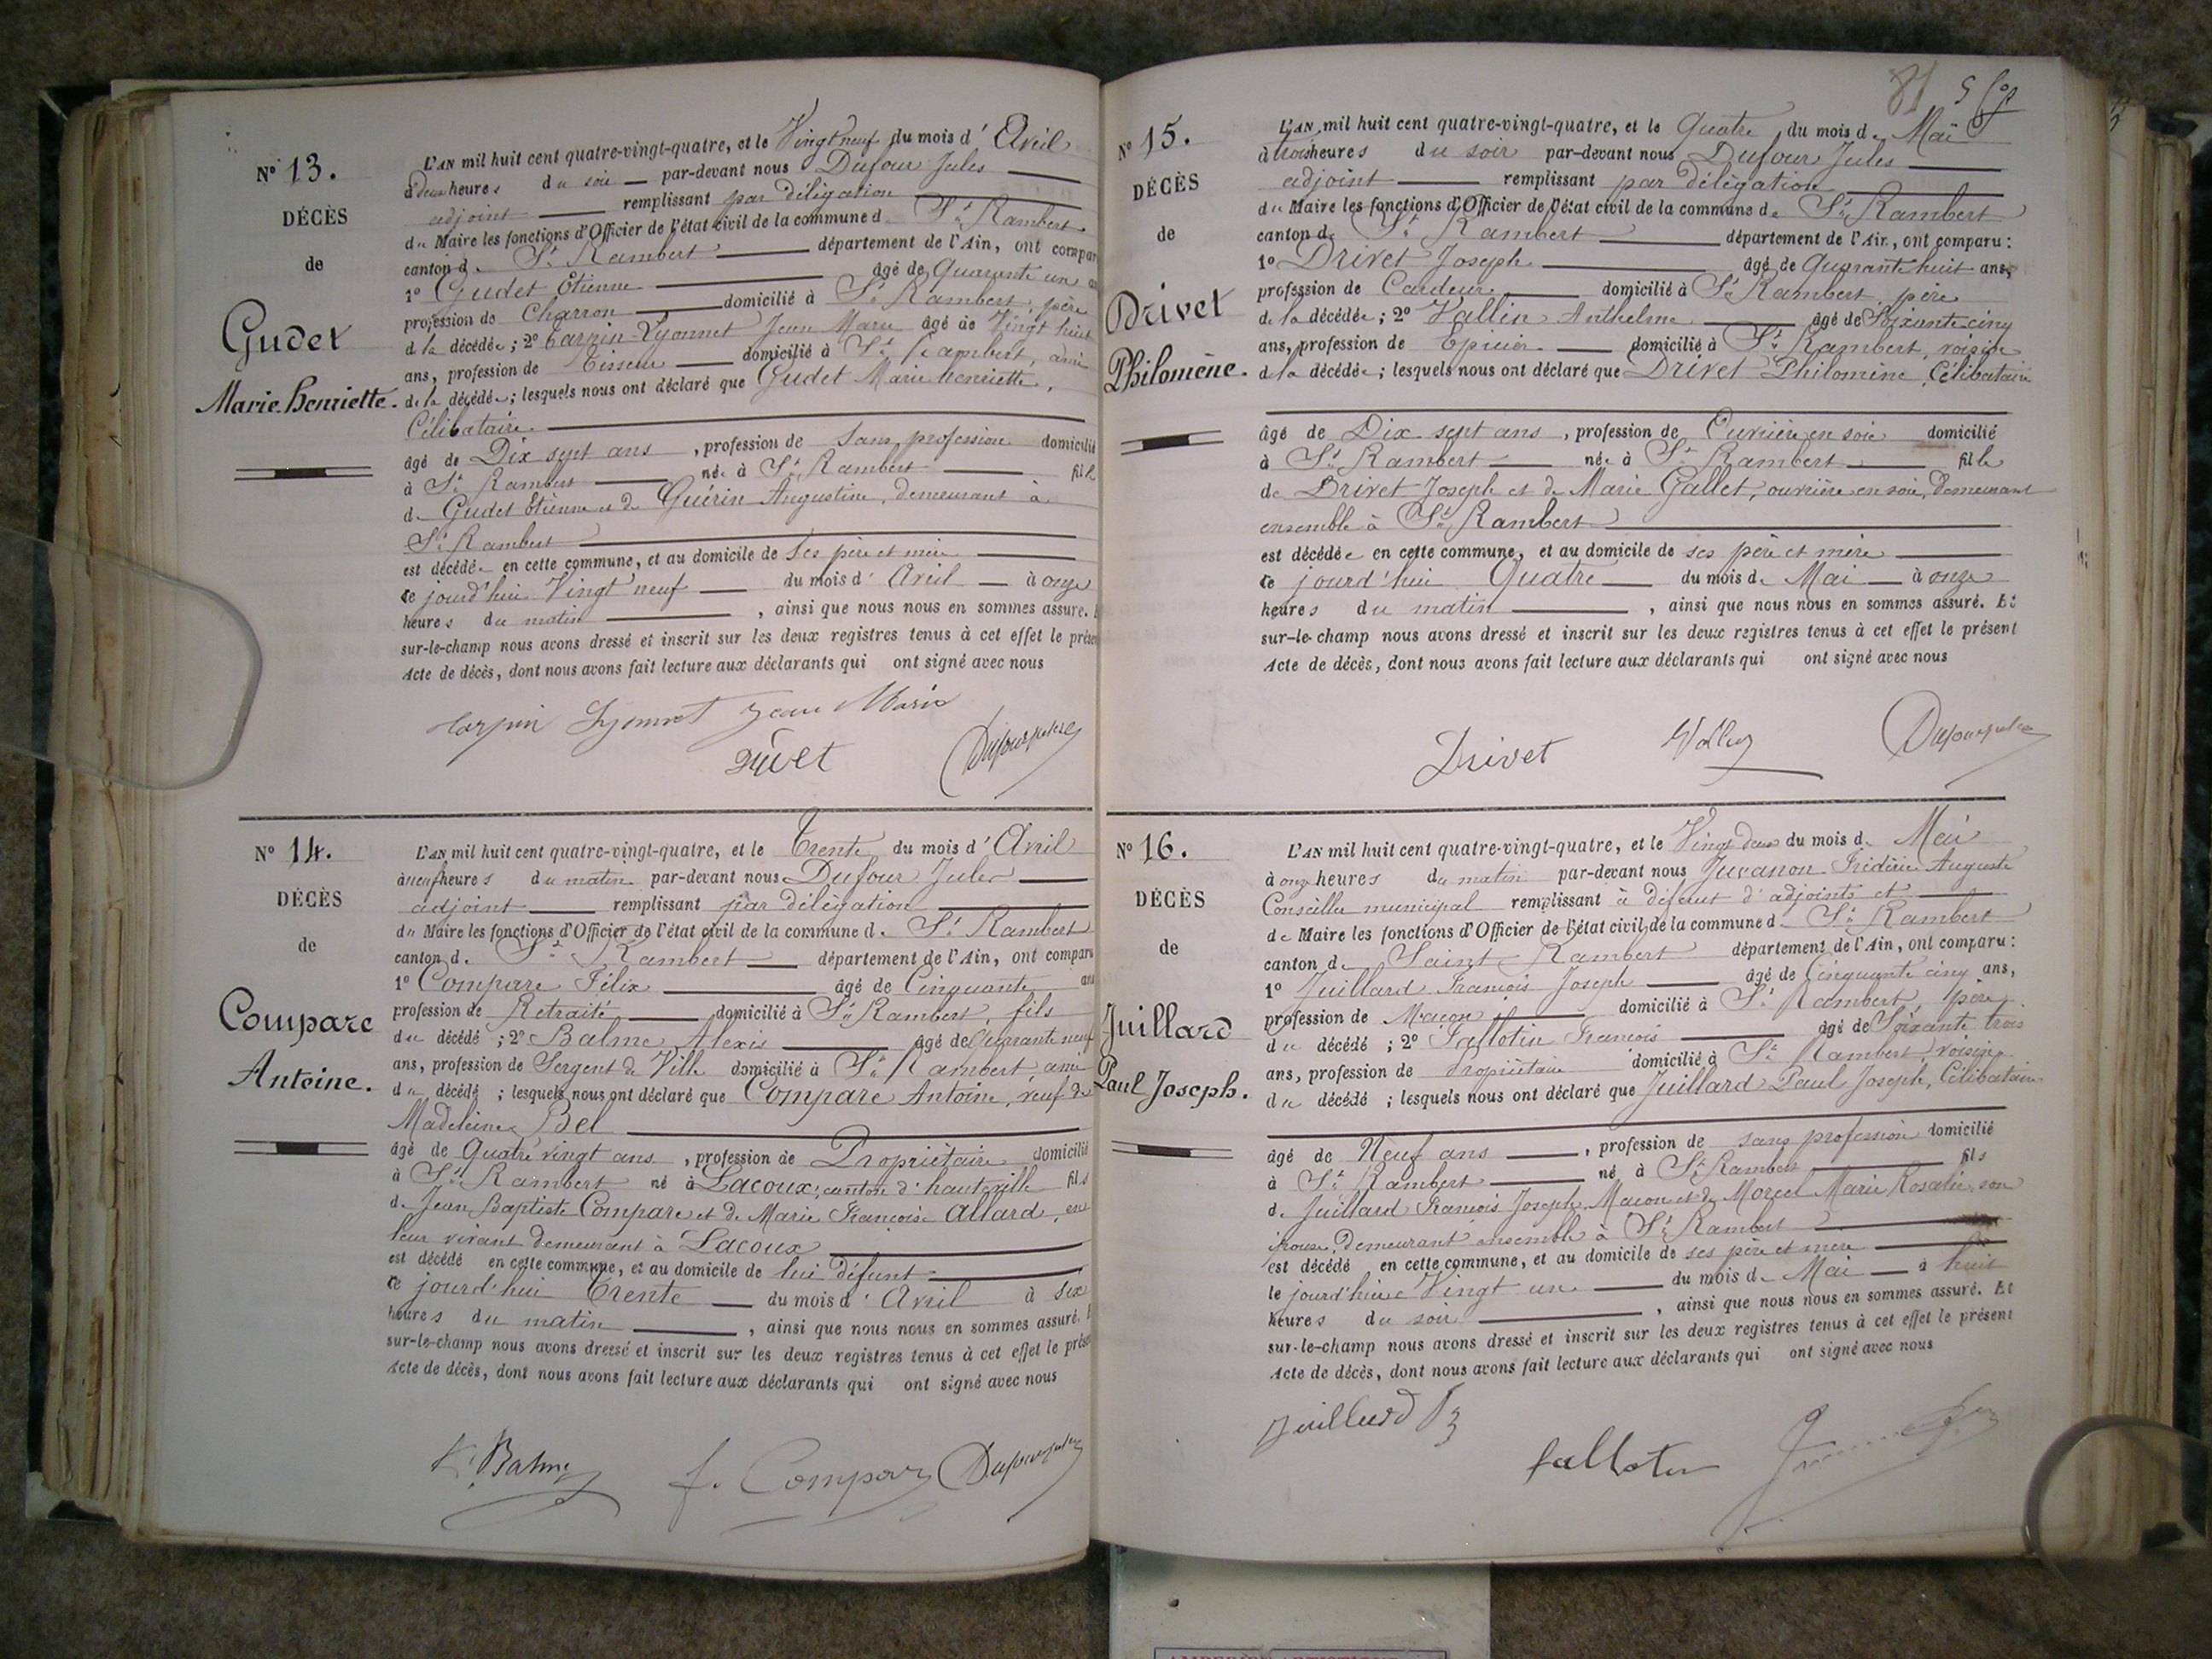 N° 13.
DÉCÈS
de
Gudet
Marie Henriette.
L'AN mil huit cent quatre-vingt-quatre, et le Vingt neuf du mois d'Avril
à deux heures du soir par-devant nous Dufour Jules
adjoint remplissant par délégation
du Maire les fonctions d'Officier de l'état civil de la commune d. St Rambert
canton d. St Rambert département de l'Ain, ont compar
1° Gudet Etienne âgé de Quarante un a
profession de Charron domicilié à St Rambert, père
d la décédée; 2° Carpin-Lyonnet Jean Marie âgé de Vingt huit
ans, profession de Tisseur domicilié à St Rambert, ami
de la décédée; lesquels nous ont déclaré que Gudet Marie henriette,
Célibataire
âgé de Dix sept ans, profession de Sans profession domicilié
à St Rambert née à St Rambert fille
d. Gudet Etienne et de Guérin Augustine, demeurant à
St Rambert
est décédée en cette commune, et au domicile de Ses père et mère
ce jourd'hui Vingt neuf du mois d'Avril à onze
heures du matin, ainsi que nous nous en sommes assuré. E
sur-le-champ nous avons dressé et inscrit sur les deux registres tenus à cet effet le prése
Acte de décès, dont nous avons fait lecture aux déclarants qui ont signé avec nous
Carpin Lyonnet Jean Marie
Dufour Jules
N° 14.
DÉCÈS
de
Compare
Antoine.
L'AN mil huit cent quatre-vingt-quatre, et le Trente du mois d'Avril
à neuf heures du matin par-devant nous Dufour Jules
adjoint remplissant par délégation
du Maire les fonctions d'Officier de l'état civil de la commune d. St Rambert
canton d. St Rambert département de l'Ain, ont comparu
1° Compare Félix âgé de Cinquante ans
profession de Retraité domicilié à St Rambert, fils
du décédé; 2° Balme Alexis âgé de Quarante neuf
ans, profession de Sergent de Ville domicilié à St Rambert, ami
du décédé; lesquels nous ont déclaré que Compare Antoine, veuf de
Madeleine Bel
âgé de Quatre vingt ans, profession de Propriètaire domicilié
à St Rambert né à Lacoux, canton d'hauteville fils
d. Jean Baptiste Compare et de Marie Françoise Allard, en
leur vivant demeurant à Lacoux
est décédé en cette commune, et au domicile de lui défunt
ce jourd'hui Trente du mois d'Avril à six
heures du matin, ainsi que nous nous en sommes assuré. E
sur-le-champ nous avons dressé et inscrit sur les deux registres tenus à cet effet le prése
Acte de décès, dont nous avons fait lecture aux déclarants qui ont signé avec nous
Balme f. Compare Dufour Jules
81
N° 15.
DÉCÈS
de
Drivet
Philomène.
L'AN mil huit cent quatre-vingt-quatre, et le Quatre du mois de Mai
à trois heures du soir par-devant nous Dufour Jules
adjoint remplissant par délégation
du Maire les fonctions d'Officier de l'état civil de la commune de St Rambert
canton de St Rambert département de l'Ain, ont comparu:
1° Drivet Joseph âgé de Quarante huit ans,
profession de Cardeur domicilié à St Rambert, père
de la décédée; 2° Vallin Anthelme âgé de Soixante cinq
ans, profession de Epicier domicilié à St Rambert, voisin
d la décédée; lesquels nous ont déclaré que Drivet Philomène, Célibataire
âgé de Dix sept ans, profession de Ouvrière en soie domicilié
à St Rambert née à St Rambert fille
de Drivet Joseph et de Marie Gallet, ouvrière en soie, demeurant
ensemble à St Rambert
est décédée en cette commune, et au domicile de ses père et mère
ce jourd'hui Quatre du mois de Mai à onze
heures du matin, ainsi que nous nous en sommes assuré. Et
sur-le-champ nous avons dressé et inscrit sur les deux registres tenus à cet effet le présent
Acte de décès, dont nous avons fait lecture aux déclarants qui ont signé avec nous
Drivet Dufour Jules
N° 16.
DÉCÈS
de
Juillard
Paul Joseph.
L'AN mil huit cent quatre-vingt-quatre, et le Vingt deux du mois d. Mai
à onze heures du matin par-devant nous Juvanon Frédéric Auguste
Conseiller municipal remplissant à défaut d'adjoints et
de Maire les fonctions d'Officier de l'état civil de la commune d. St Rambert
canton de Saint Rambert département de l'Ain, ont comparu:
1° Juillard François Joseph âgé de Cinquante cinq ans,
profession de Maçon domicilié à St Rambert, père
du décédé; 2° Fallotin François âgé de Soixante trois
ans, profession de Propriètaire domicilié à St Rambert, voisin
du décédé; lesquels nous ont déclaré que Juillard Paul Joseph, Célibataire
âgé de Neuf ans, profession de sans profession domicilié
à St Rambert né à St Rambert fils
d. Juillard François Joseph, Maçon et de Morcel Marie Rosalie, son
épouse, demeurant ensemble à St Rambert
est décédé en cette commune, et au domicile de ses père et mère
le jourd'hier Vingt un du mois de Mai à huit
heures du soir, ainsi que nous nous en sommes assuré. Et
sur-le-champ nous avons dressé et inscrit sur les deux registres tenus à cet effet le présent
Acte de décès, dont nous avons fait lecture aux déclarants qui ont signé avec nous
Juillard
fallotin